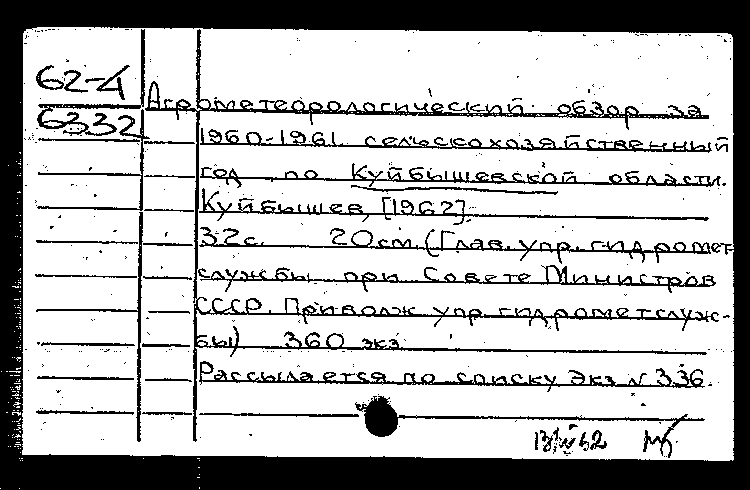 62-4
6332
Агрометеорологический обзор за
1960-1961 сельскохозяйственный
год по Куйбышевской области.
Куйбышев, [1962].
32с. 20см. (Глав. упр. гидромет-
службы при Совете Министров
СССР. Приволж упр. гидрометслуж-
бы) 360 экз.
Рассылается по списку Экз № 336.
62